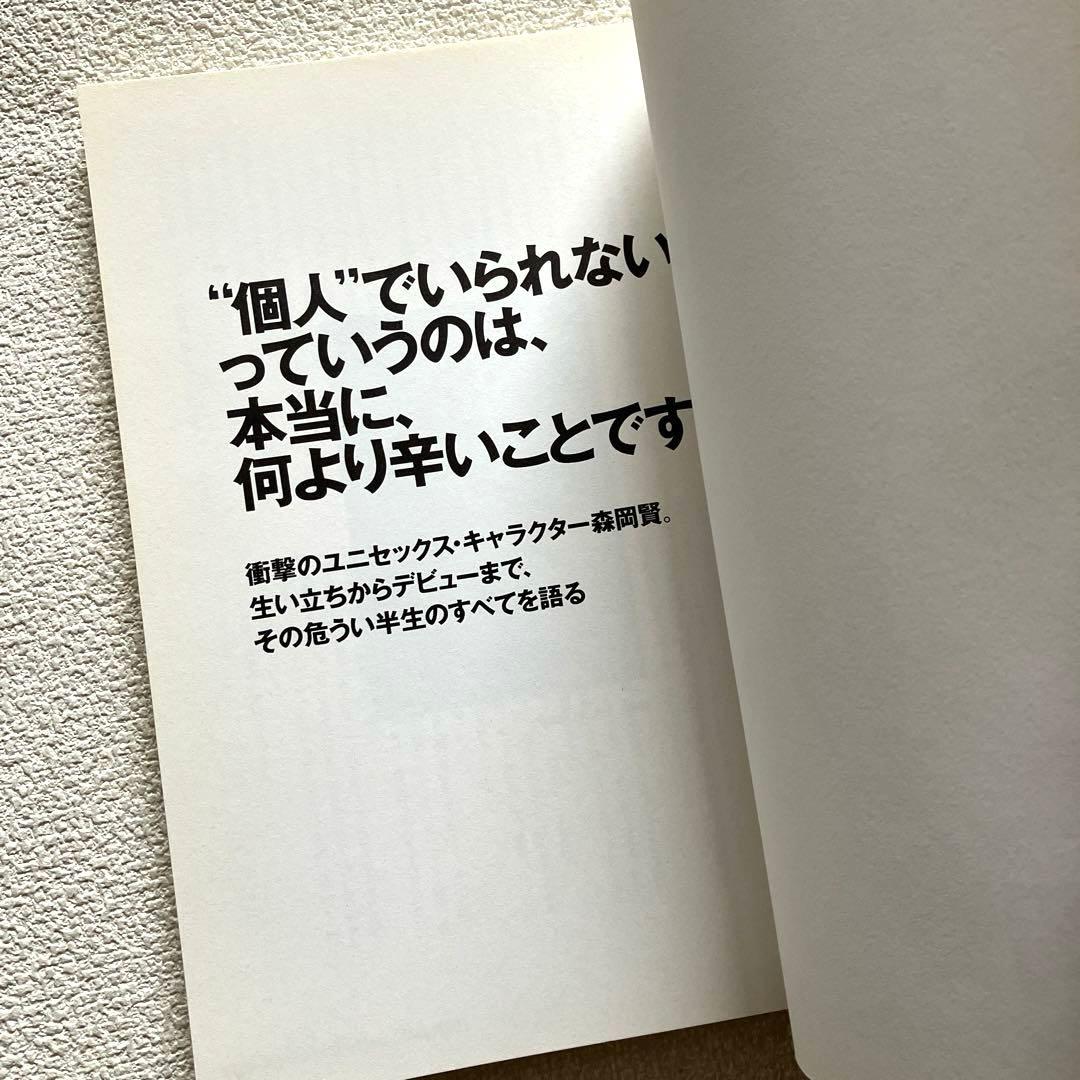 “個人”でいられない
っていうのは、
本当に、
何より辛いことです
衝撃のユニセックス・キャラクター森岡賢。
生い立ちからデビューまで、
その危うい半生のすべてを語る